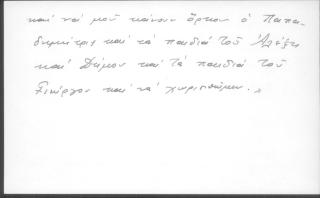 καί νά μοῦ κάνουν ὅρκον ὁ Παπα-
δημήτρης καί τά παιδιά τοῦ Ἀλέξη
καί Δήμου καί τά παιδιά τοῦ
Γιώργου καί νά χωρισθῶμεν.»